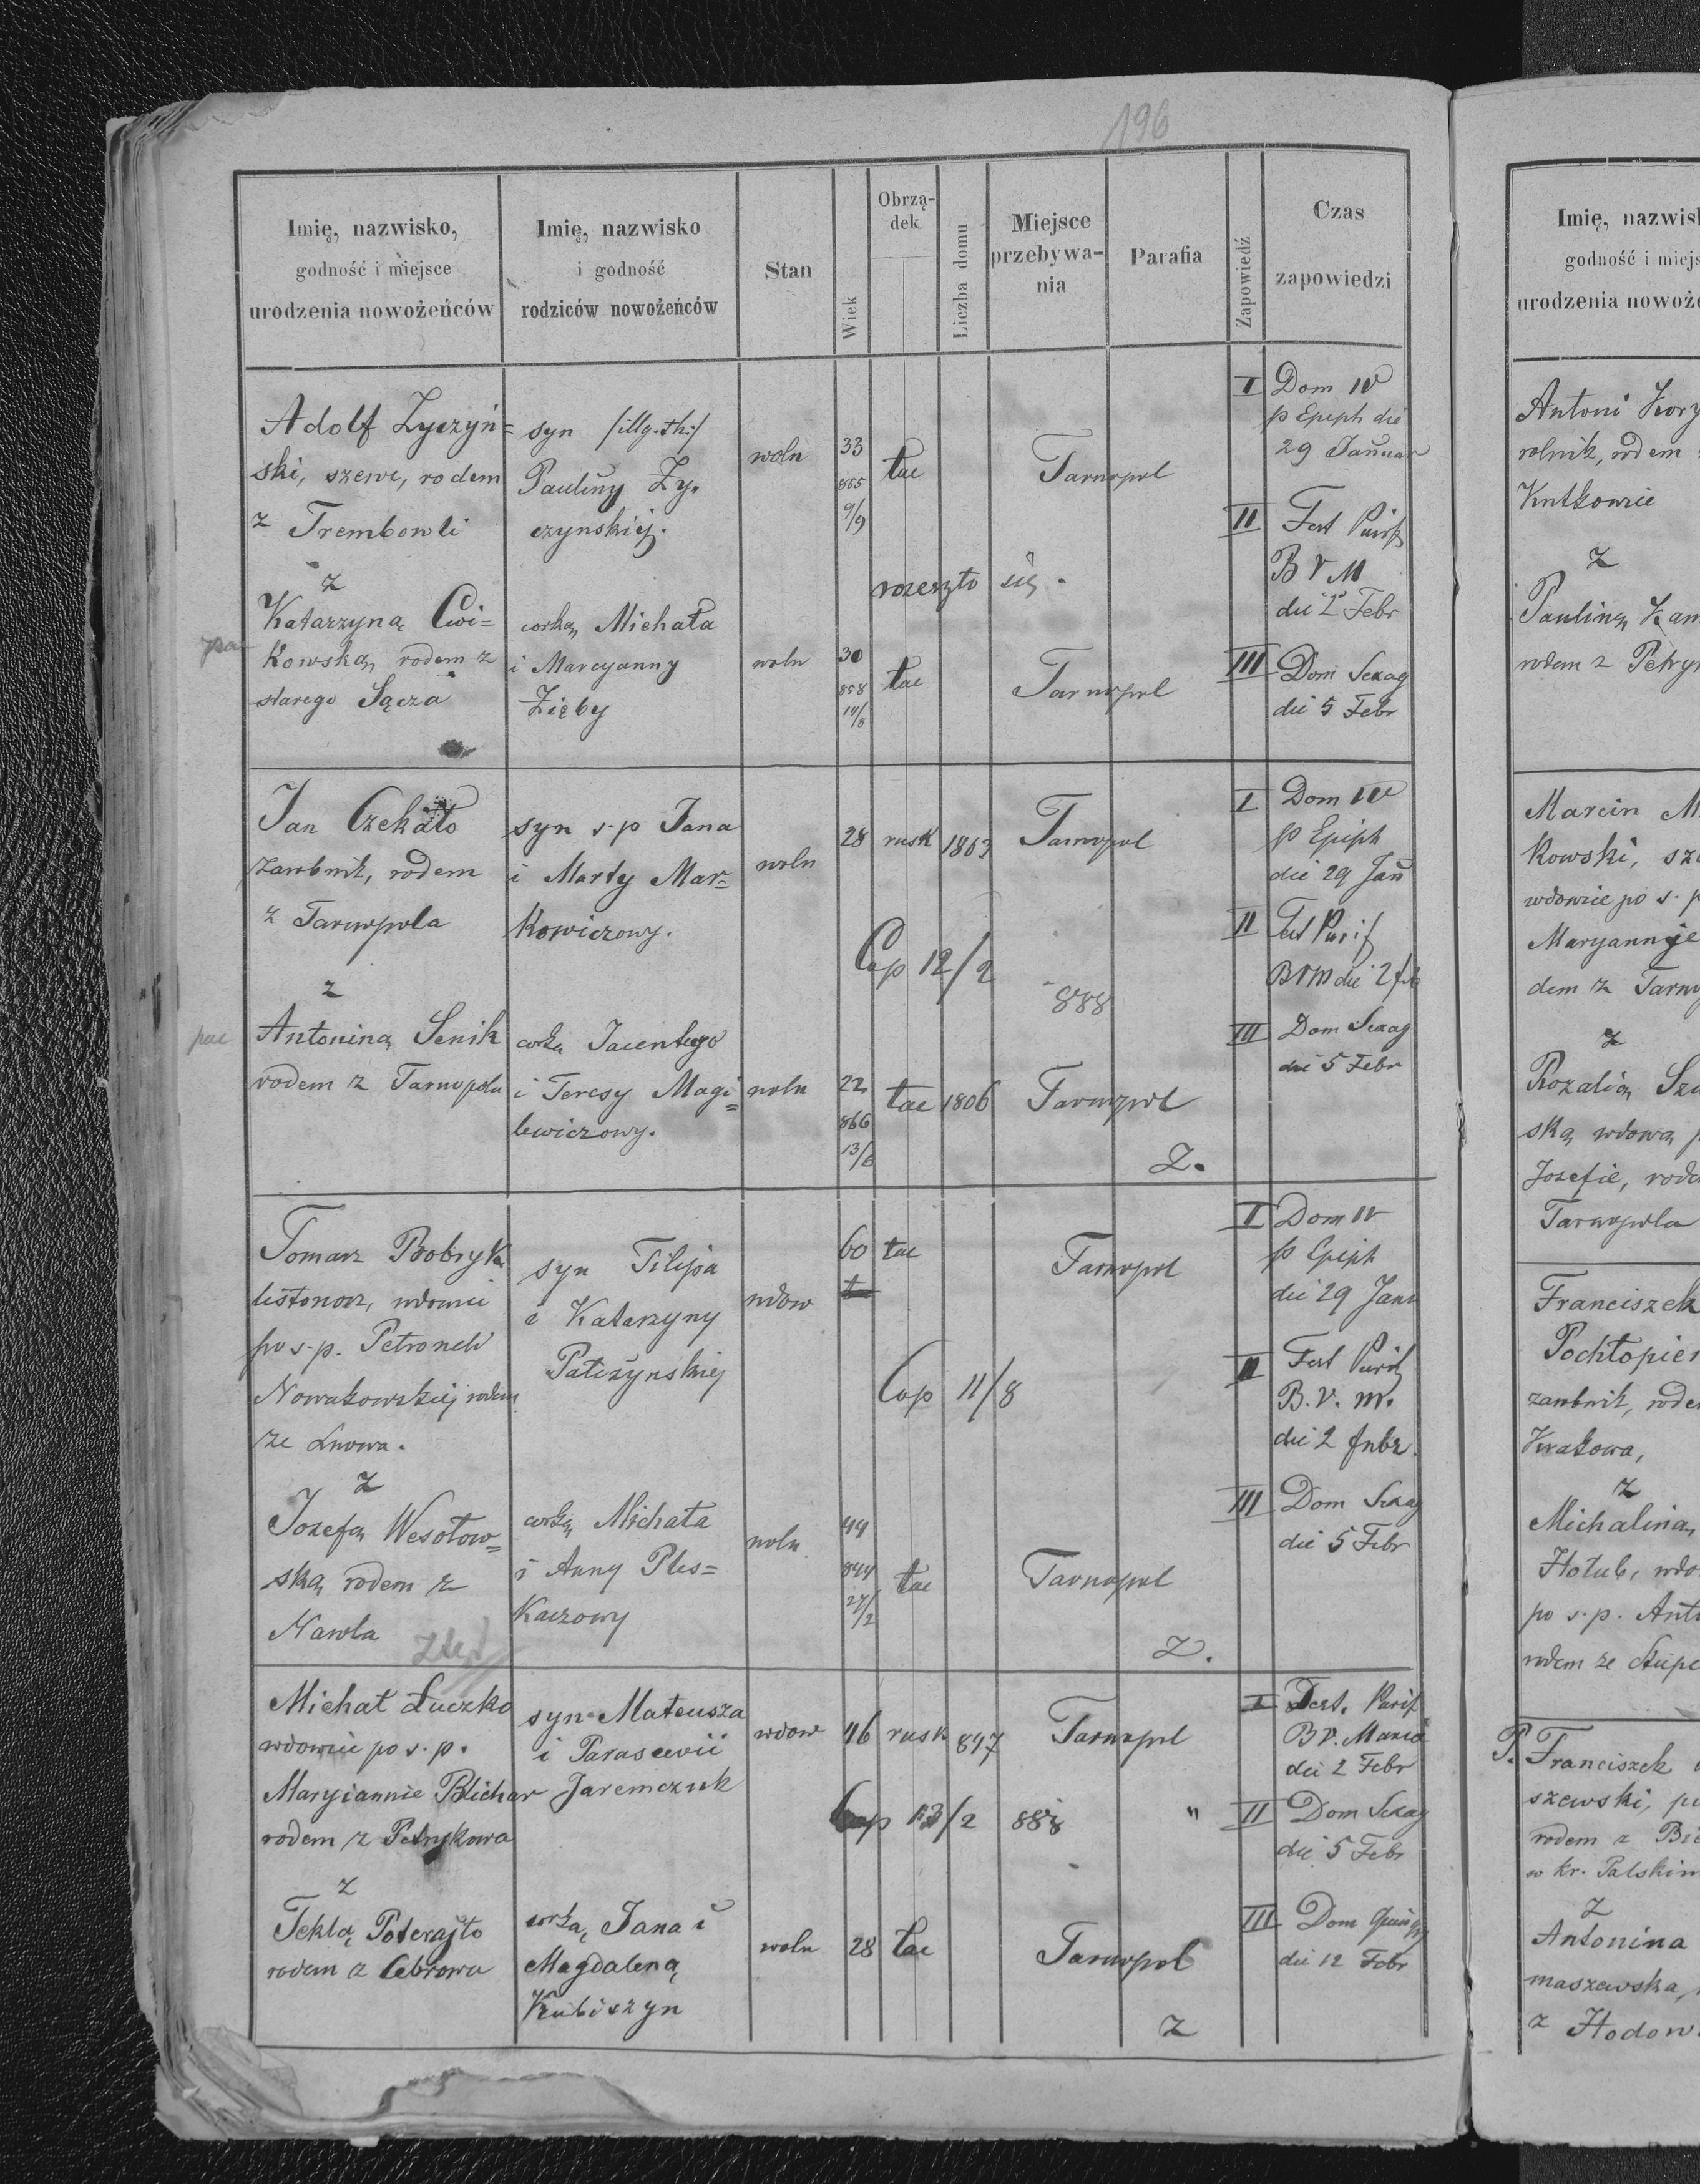 196
Imię, nazwisko,
godność i miejsce
urodzenia nowożeńców
Imię, nazwisko
i godność
rodziców nowożeńców
Stan
Wiek
Obrzą-
dek
Liczba domu
Miejsce
przebywa-
nia
Parafia
Zapowiedź
Czas
zapowiedzi
Adolf Zyczyń=
ski, szewc, rodem
z Trembowli
z
Katarzyną Cwi=
kowską rodem z
starego Sącza
syn /illg. th:/
Pauliny Zy.
czynskiej.
corką Michała
i Maryanny
Zięby
woln
woln
33
865
9/9
30
858
14/8
łac
łac
rozeszło się.
Tarnopol
Tarnopol
I Dom IV
p Epiph die
29 Januar
II Fest Purif
B V M
die 2 Febr
III Dom Sexag
die 5 Febr
Jan Czekało
zarobnik, rodem
z Tarnopola
z
pac Antoniną Senik
rodem z Tarnopola
syn s.p Jana
i Marty Mar=
kowiczowy.
corką Jacentego
i Teresy Magi=
lewiczowy.
woln
woln
28 rusk 1863 Tarnopol
Cop 12/2
888
22
866
13/6
łac 1806 Tarnopol
Z.
I Dom IV
p Epiph
die 29 Jan
II Fest Purif
BVM die 2 feb
III Dom Sexag
die 5 Febr
Tomasz Bobryk
listonosz, wdowiec
po s.p. Petroneli
Nowakowskiej rodem
ze Lwowa.
z
Jozefą Wesołow=
ską rodem z
Nawła
syn Filipa
i Katarzyny
Patiszynskiej
corką Michała
i Anny Ples=
kaczowy
wdow
woln
60 łac
Tarnopol
Cop 11/8
44
844
27/2
łac Tarnopol
Z.
I Dom IV
p Epiph
die 29 Janu
II Fest Purif
B. V. M.
die 2 febr.
III Dom Sexag
die 5 Febr
Michał Łuczko
wdowiec po s.p.
Maryiannie Blichar
rodem z Petrykowa
z
Teklą Poterajło
rodem z Cebrowa
syn Mateusza
i Parascewii
Jaremczuk
corką Jana i
Magdaleną
Kubiszyn
wdow 46 rusk 897 Tarnopol
Cop 13/2 888 "
woln 28 łac Tarnopol
Z
I Fest. Purif
B V. Maria
die 2 Febr
II Dom Sexag
die 5 Febr
III Dom Quinqu
die 12 Febr
Imię, nazwisk
godność i miejs
urodzenia nowoże
Antoni Kory
rolnik, rodem
Kutkowie
z
Pauliną Kam
rodem z Petry
Marcin M
kowski, sze
wdowiec po s. p
Maryannie
dem z Tarno
z
Rozalią Sz
ską wdową p
Jozefie, rode
Tarnopola
Franciszek
Pochłopień
zarobnik, rode
Krakowa,
z
Michaliną
Hołub, wdo
po s.p. Anto
rodem ze
P. Franciszek
szewski,
rodem z
w kr. Polskim
z
Antonina
maszewska,
z Hodow